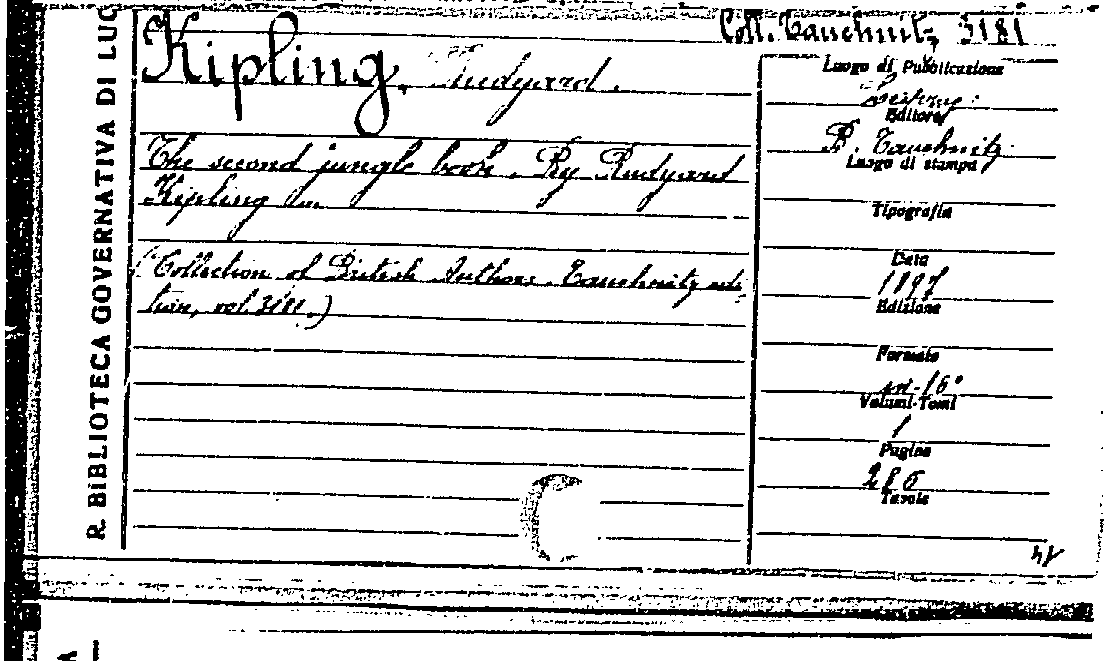 R. BIBLIOTECA GOVERNATIVA DI LUC
Coll. Tauchnitz 3181
Kipling, Rudyard.
The second jungle book. By Rudyard
Kipling
(Collection of British Authors. Tauchnitz edi-
tion, vol. 3181.)
Luogo di Pubblicazione
Leipzig:
Editore
B. Tauchnitz
Luogo di stampa
Tipografia
Data
1897
Edizione
Formato
in-16°
Volumi-Tomi
1
Pagine
285
Tavole